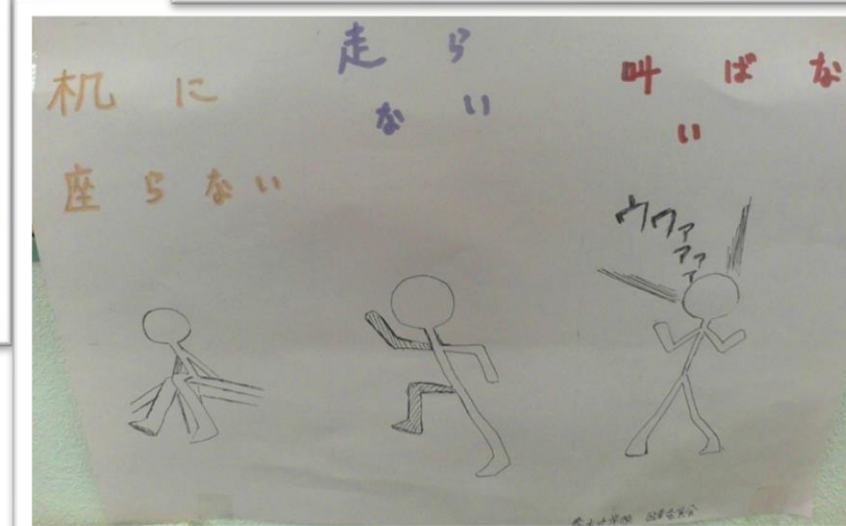 机に
座らない
走ら
ない
叫ばな
い
ウワァ
ァァ
ァ